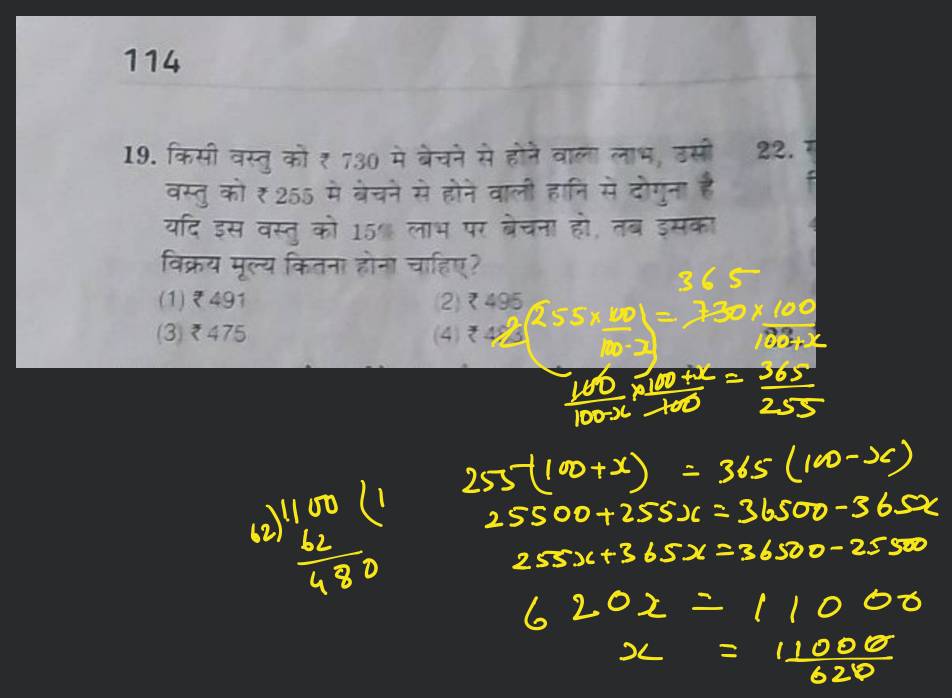 114
19. किसी वस्तु को ₹ 730 मे बेचने से होने वाला लाभ, उसी
वस्तु को ₹ 255 मे बेचने से होने वाली हानि से दोगुना है
यदि इस वस्तु को 15% लाभ पर बेचना हो, तब इसका
विक्रय मूल्य कितना होना चाहिए?
(1) ₹ 491 (2) ₹ 495
(3) ₹ 475 (4) ₹
22.
365
2(255 × 100/100-x) = 730 × 100/100+x
100/100-x × 100+x/100 = 365/255
255(100+x) = 365(100-x)
25500+255x = 36500-365x
255x+365x = 36500-25500
620x = 11000
x = 11000/620
62)1100(1
62
480